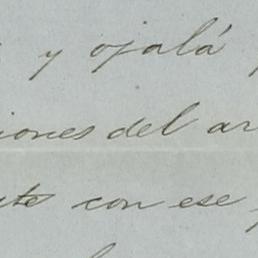 y ojalá
iones del ar
te con ese